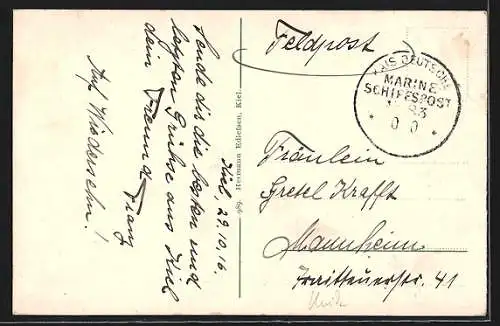 Kiel, 29.10.16.
Sende dir die besten und
Grüße aus Kiel
dein Freund
Franz
Auf Wiedersehn!
989. Hermann Edlefsen, Kiel.
Feldpost
KAIS. DEUTSCHE
MARINE
SCHIFFSPOST
No 83
* 0 0 *
Fräulein
Gretel Krafft
Mannheim
41